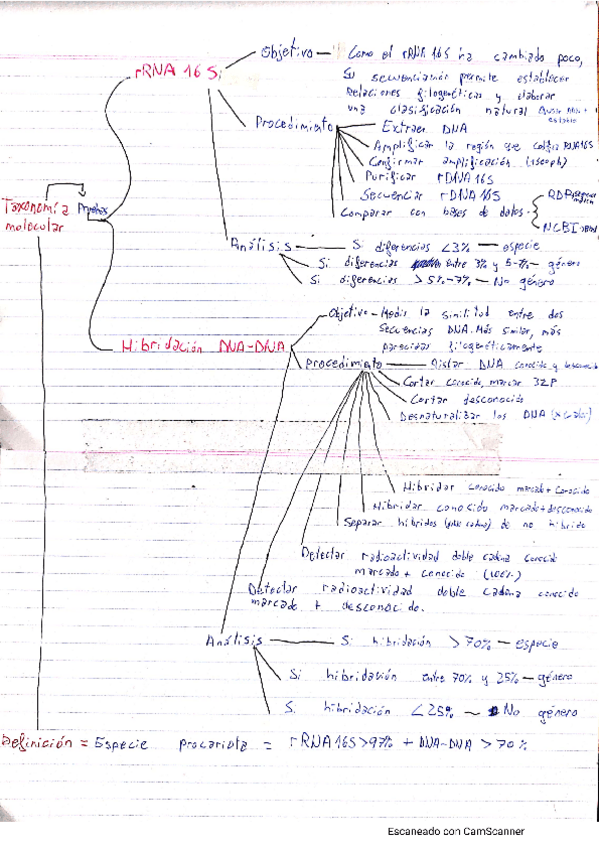 Objetivo — Como el rRNA 16S ha cambiado poco,
rRNA 16S:
su secuenciación permite establecer
relaciones filogenéticas y elaborar
una clasificación natural
Procedimiento
Extraer DNA
Amplificar la región que codifica rRNA16S
Confirmar amplificación
Purificar rDNA 16S
Taxonomía Pruebas
molecular
Secuenciar rDNA 16S
Comparar con bases de datos
RDP
NCBI
Análisis — Si diferencias <3% — especie
Si diferencias entre 3% y 5-7% — género
Si diferencias >5%-7% — No género
Objetivo — Medir la similitud entre dos
secuencias DNA. Más similar, más
parecidas filogenéticamente
Hibridación DNA-DNA
Procedimiento — Aislar DNA conocido y desconocido
Cortar conocido, marcar 32P
Cortar desconocido
Desnaturalizar los DNA (x calor)
Hibridar conocido marcado + conocido
Hibridar conocido marcado + desconocido
Separar híbridos de no híbrido
Detectar radioactividad doble cadena conocido
marcado + conocido (100%)
Detectar radioactividad doble cadena conocido
marcado + desconocido.
Análisis — Si hibridación >70% — especie
Si hibridación entre 70% y 25% — género
Si hibridación <25% — No género
Definición = Especie procariota = rRNA16S>97% + DNA-DNA >70%
Escaneado con CamScanner